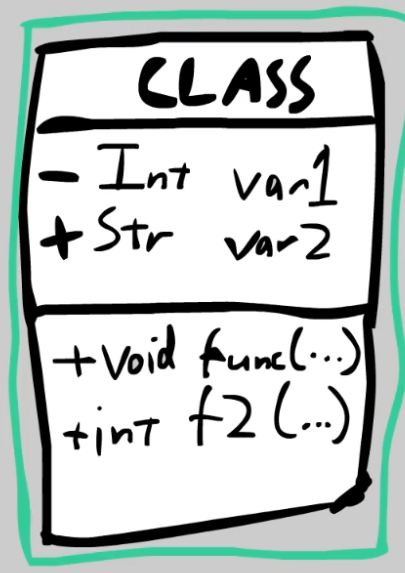 CLASS
- Int var1
+ Str var2
+void func(...)
+int f2 (...)